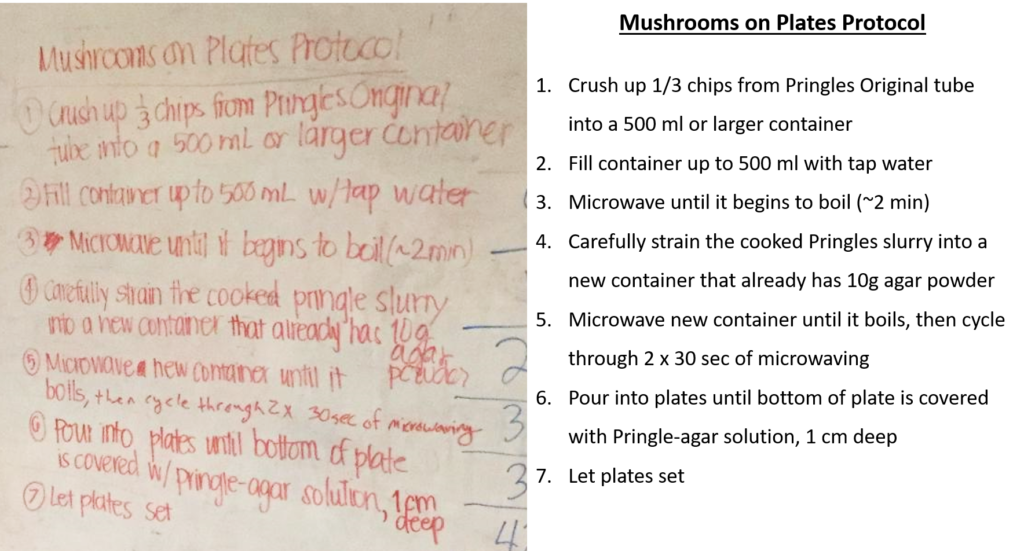 Mushrooms on Plates Protocol
① Crush up 1/3 chips from Pringles Original
tube into a 500 mL or larger container
② Fill container up to 500 mL w/tap water
③ Microwave until it begins to boil (~2min)
④ Carefully strain the cooked pringle slurry
into a new container that already has 10g
agar
powder
⑤ Microwave a new container until it
boils, then cycle through 2x 30sec of microwaving
⑥ Pour into plates until bottom of plate
is covered w/ pringle-agar solution, 1cm
deep
⑦ Let plates set
2
3
3
4
Mushrooms on Plates Protocol
1. Crush up 1/3 chips from Pringles Original tube
into a 500 ml or larger container
2. Fill container up to 500 ml with tap water
3. Microwave until it begins to boil (~2 min)
4. Carefully strain the cooked Pringles slurry into a
new container that already has 10g agar powder
5. Microwave new container until it boils, then cycle
through 2 x 30 sec of microwaving
6. Pour into plates until bottom of plate is covered
with Pringle-agar solution, 1 cm deep
7. Let plates set